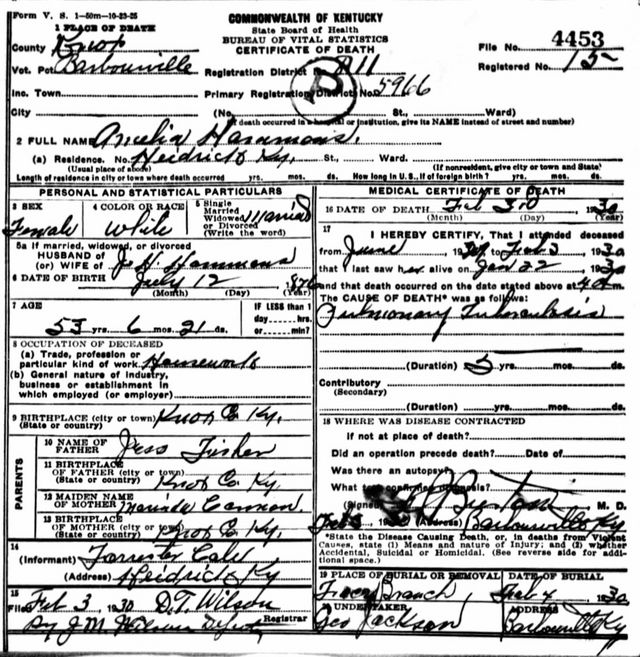 Form V. S. 1-50m-10-23-25
COMMONWEALTH OF KENTUCKY
State Board of Health
BUREAU OF VITAL STATISTICS
CERTIFICATE OF DEATH
1 PLACE OF DEATH
County Knox
File No. 4453
Vot. Pct. Barbourville
Registration District No. 911
Registered No. 15
Inc. Town
Primary Registration District No. 5966
City (No. St., Ward)
(If death occurred in a hospital or institution, give its NAME instead of street and number)
2 FULL NAME Amelia Hammons.
(a) Residence. No. Heidrick Ky. St., Ward.
(Usual place of abode) (If nonresident, give city or town and State)
Length of residence in city or town where death occurred yrs. mos. ds. How long in U. S., if of foreign birth? yrs. mos. ds.
PERSONAL AND STATISTICAL PARTICULARS
3 SEX Female
4 COLOR OR RACE White
5 Single Married Widowed or Divorced (Write the word) Married
5a If married, widowed, or divorced
HUSBAND of
(or) WIFE of J. H. Hammons
6 DATE OF BIRTH July 12 1876
(Month) (Day) (Year)
7 AGE 53 yrs. 6 mos. 21 ds.
IF LESS than 1 day----hrs. or----min?
8 OCCUPATION OF DECEASED
(a) Trade, profession or particular kind of work Housework
(b) General nature of industry, business or establishment in which employed (or employer)
9 BIRTHPLACE (city or town) Knox Co. Ky.
(State or country)
PARENTS
10 NAME OF FATHER Jess Fisher
11 BIRTHPLACE OF FATHER (city or town) Knox Co. Ky.
(State or country)
12 MAIDEN NAME OF MOTHER Cannon.
13 BIRTHPLACE OF MOTHER (city or town) Knox Co. Ky.
(State or country)
14
(Informant) Forrester Cole
(Address) Heidrick Ky
15
Filed Feb 3, 1930 D.T. Wilson
Registrar
By J.M. Wilson Deputy
MEDICAL CERTIFICATE OF DEATH
16 DATE OF DEATH Feb 3rd 1930
(Month) (Day) (Year)
17
I HEREBY CERTIFY, That I attended deceased
from June, 19 to Feb 3, 1930
that I last saw her alive on Jan 22, 1930
and that death occurred on the date stated above at 4 m.
The CAUSE OF DEATH* was as follows:
Pulmonary Tuberculosis
(Duration) 5 yrs. mos. ds.
Contributory
(Secondary)
(Duration) yrs. mos. ds.
18 WHERE WAS DISEASE CONTRACTED
If not at place of death?
Did an operation precede death? Date of
Was there an autopsy?
What test confirmed diagnosis?
(Signed) Burton M. D.
Feb 3 1930 (Address) Barbourville Ky
*State the Disease Causing Death, or, in deaths from Violent
Causes, state (1) Means and nature of Injury; and (2) whether
Accidental, Suicidal or Homicidal. (See reverse side for addi-
tional space.)
19 PLACE OF BURIAL OR REMOVAL Branch
DATE OF BURIAL Feb 4 1930
20 UNDERTAKER Geo Jackson
ADDRESS Barbourville Ky